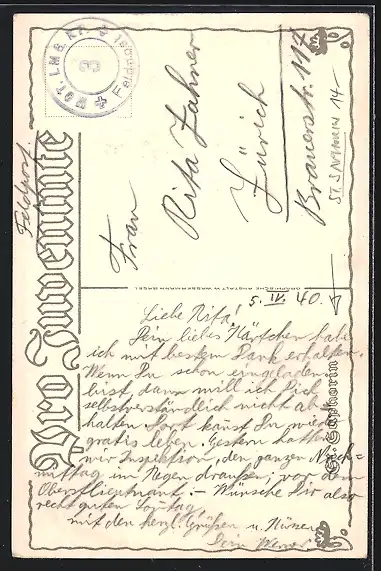 Feldpost
MOT. LMG. KP.
3
Feldpost
Pro Juventute
Frau
Rita Zahner
Zürich
Brauerstr. 117
St. Saphorin
5. VI. 40.
Liebe Rita!
Dein liebes Kärtchen habe
ich mit bestem Dank erhalten.
Wenn Du schon eingeladen
bist, dann will ich Dich
selbstverständlich nicht ab-
halten. Dort kanst Du wieder
gratis leben. Gestern hatten
wir Inspektion, den ganzen Nach=
mittag im Regen draußen, vor dem
Oberstlieutnant. – Wünsche Dir also
recht guten Sonntag,
mit den herzl. Grüßen u. Küssen
Dein Werner